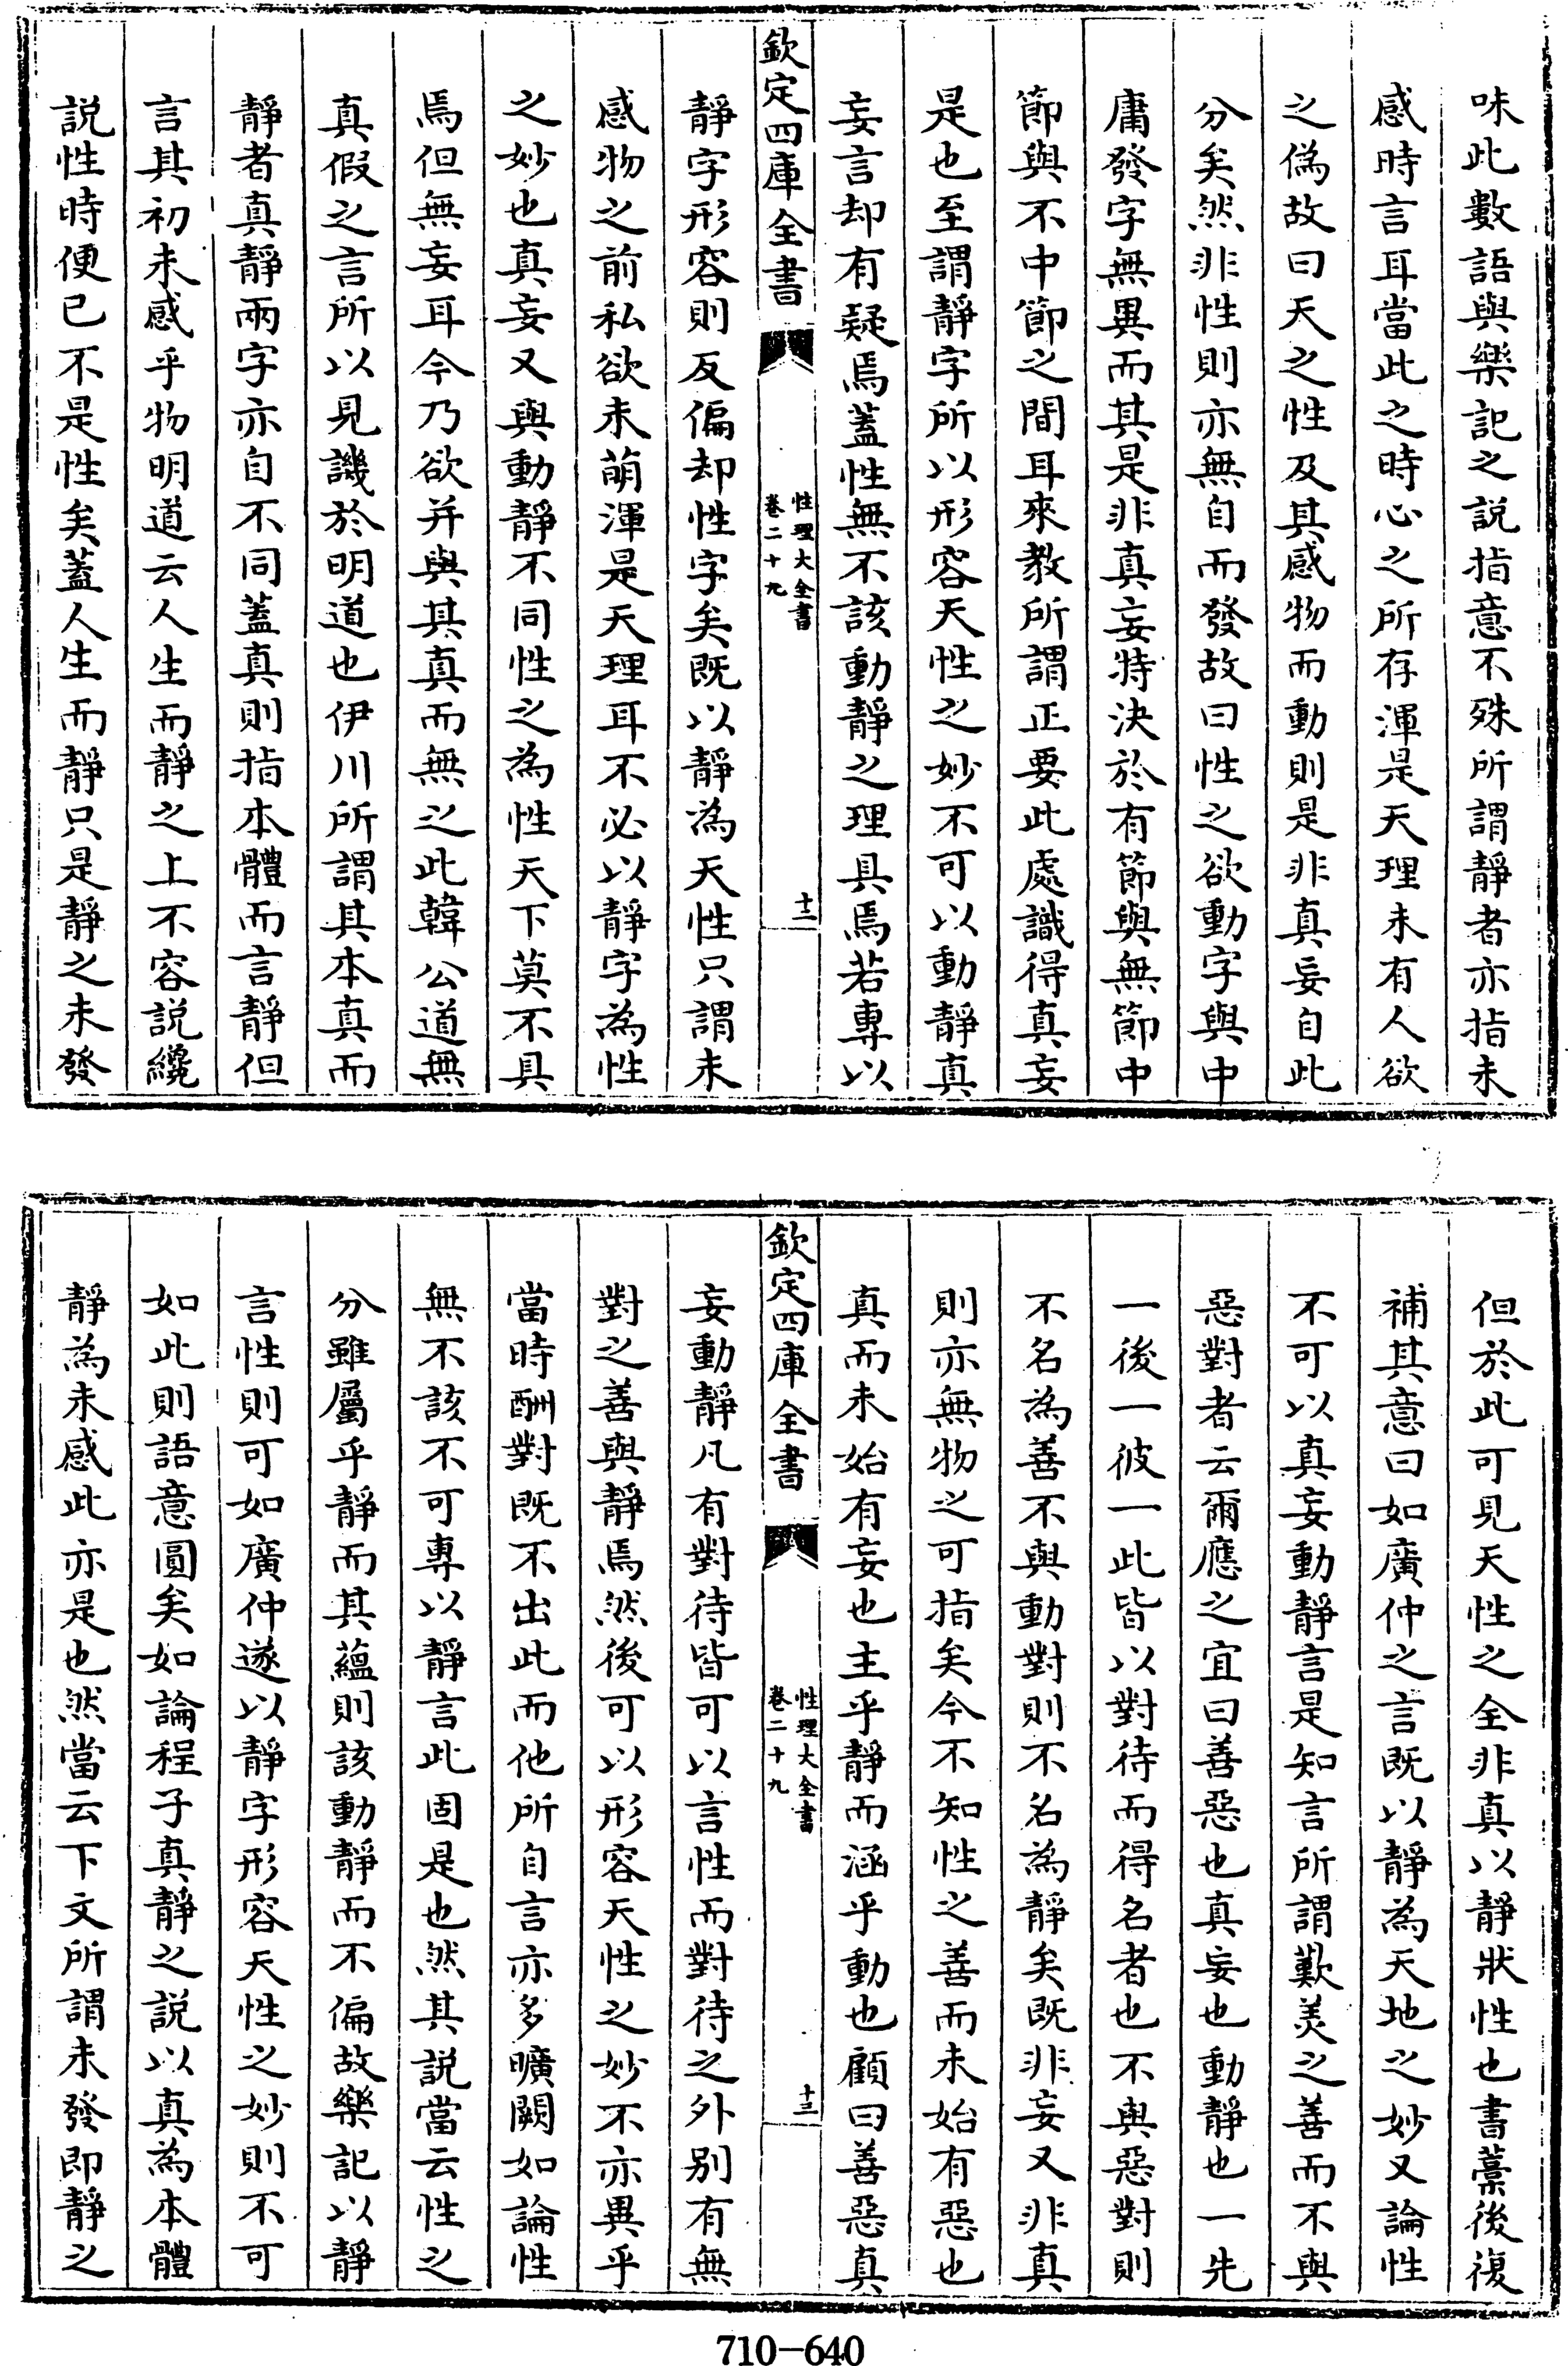 味此數語與樂記之説指意不殊所謂靜者亦指未
感時言耳當此之時心之所存渾是天理未有人欲
之偽故曰天之性及其感物而動則是非真妄自此
分矣然非性則亦無自而發故曰性之欲動字與中
庸發字無異而其是非真妄特決於有節與無節中
節與不中節之間耳來教所謂正要此處識得真妄
是也至謂靜字所以形容天性之妙不可以動靜真
妄言却有疑焉蓋性無不該動靜之理具焉若專以
欽定四庫全書
性理大全書
卷二十九
十二
靜字形容則反偏却性字矣既以靜為天性只謂未
感物之前私欲未萌渾是天理耳不必以靜字為性
之妙也真妄又與動靜不同性之為性天下莫不具
焉但無妄耳今乃欲并與其真而無之此韓公道無
真假之言所以見譏於明道也伊川所謂其本真而
靜者真靜兩字亦自不同蓋真則指本體而言靜但
言其初未感乎物明道云人生而靜之上不容説纔
説性時便已不是性矣蓋人生而靜只是靜之未發
但於此可見天性之全非真以靜狀性也書藁後復
補其意曰如廣仲之言既以靜為天地之妙又論性
不可以真妄動靜言是知言所謂歎美之善而不與
惡對者云爾應之宜曰善惡也真妄也動靜也一先
一後一彼一此皆以對待而得名者也不與惡對則
不名為善不與動對則不名為靜矣既非妄又非真
則亦無物之可指矣今不知性之善而未始有惡也
真而未始有妄也主乎靜而涵乎動也顧曰善惡真
欽定四庫全書
性理大全書
卷二十九
十三
妄動靜凡有對待皆可以言性而對待之外别有無
對之善與靜焉然後可以形容天性之妙不亦異乎
當時酬對既不出此而他所自言亦多曠闕如論性
無不該不可專以靜言此固是也然其説當云性之
分雖屬乎靜而其蘊則該動靜而不偏故樂記以靜
言性則可如廣仲遂以靜字形容天性之妙則不可
如此則語意圓矣如論程子真靜之説以真為本體
靜為未感此亦是也然當云下文所謂未發即靜之
710-640